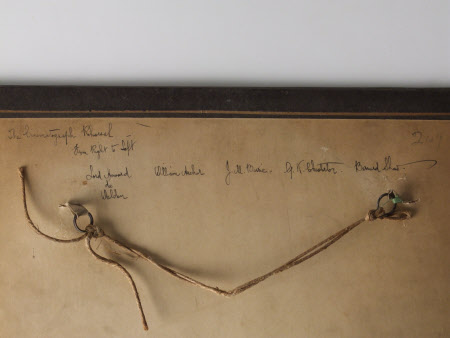 The Cinematograph
From Right to Left
Lord Howard William Archer J. M. Barrie G. K. Chesterton Bernard Shaw
de
Walden